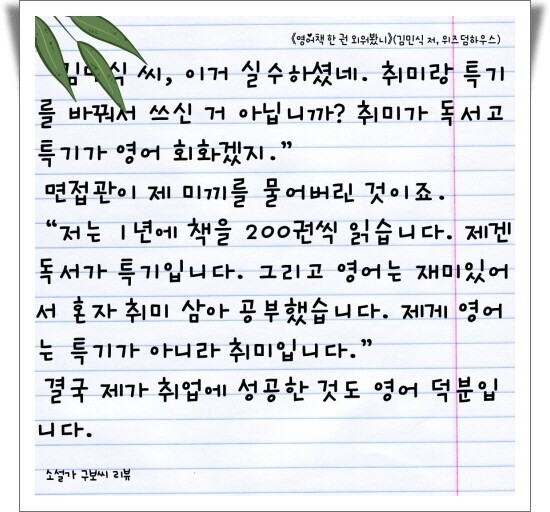 《영어책 한 권 외워봤니》(김민식 저, 위즈덤하우스)
김민식 씨, 이거 실수하셨네. 취미랑 특기
를 바꿔서 쓰신 거 아닙니까? 취미가 독서고
특기가 영어 회화겠지.”
면접관이 제 미끼를 물어버린 것이죠.
“저는 1년에 책을 200권씩 읽습니다. 제겐
독서가 특기입니다. 그리고 영어는 재미있어
서 혼자 취미 삼아 공부했습니다. 제게 영어
는 특기가 아니라 취미입니다.”
결국 제가 취업에 성공한 것도 영어 덕분입
니다.
소설가 구보씨 리뷰